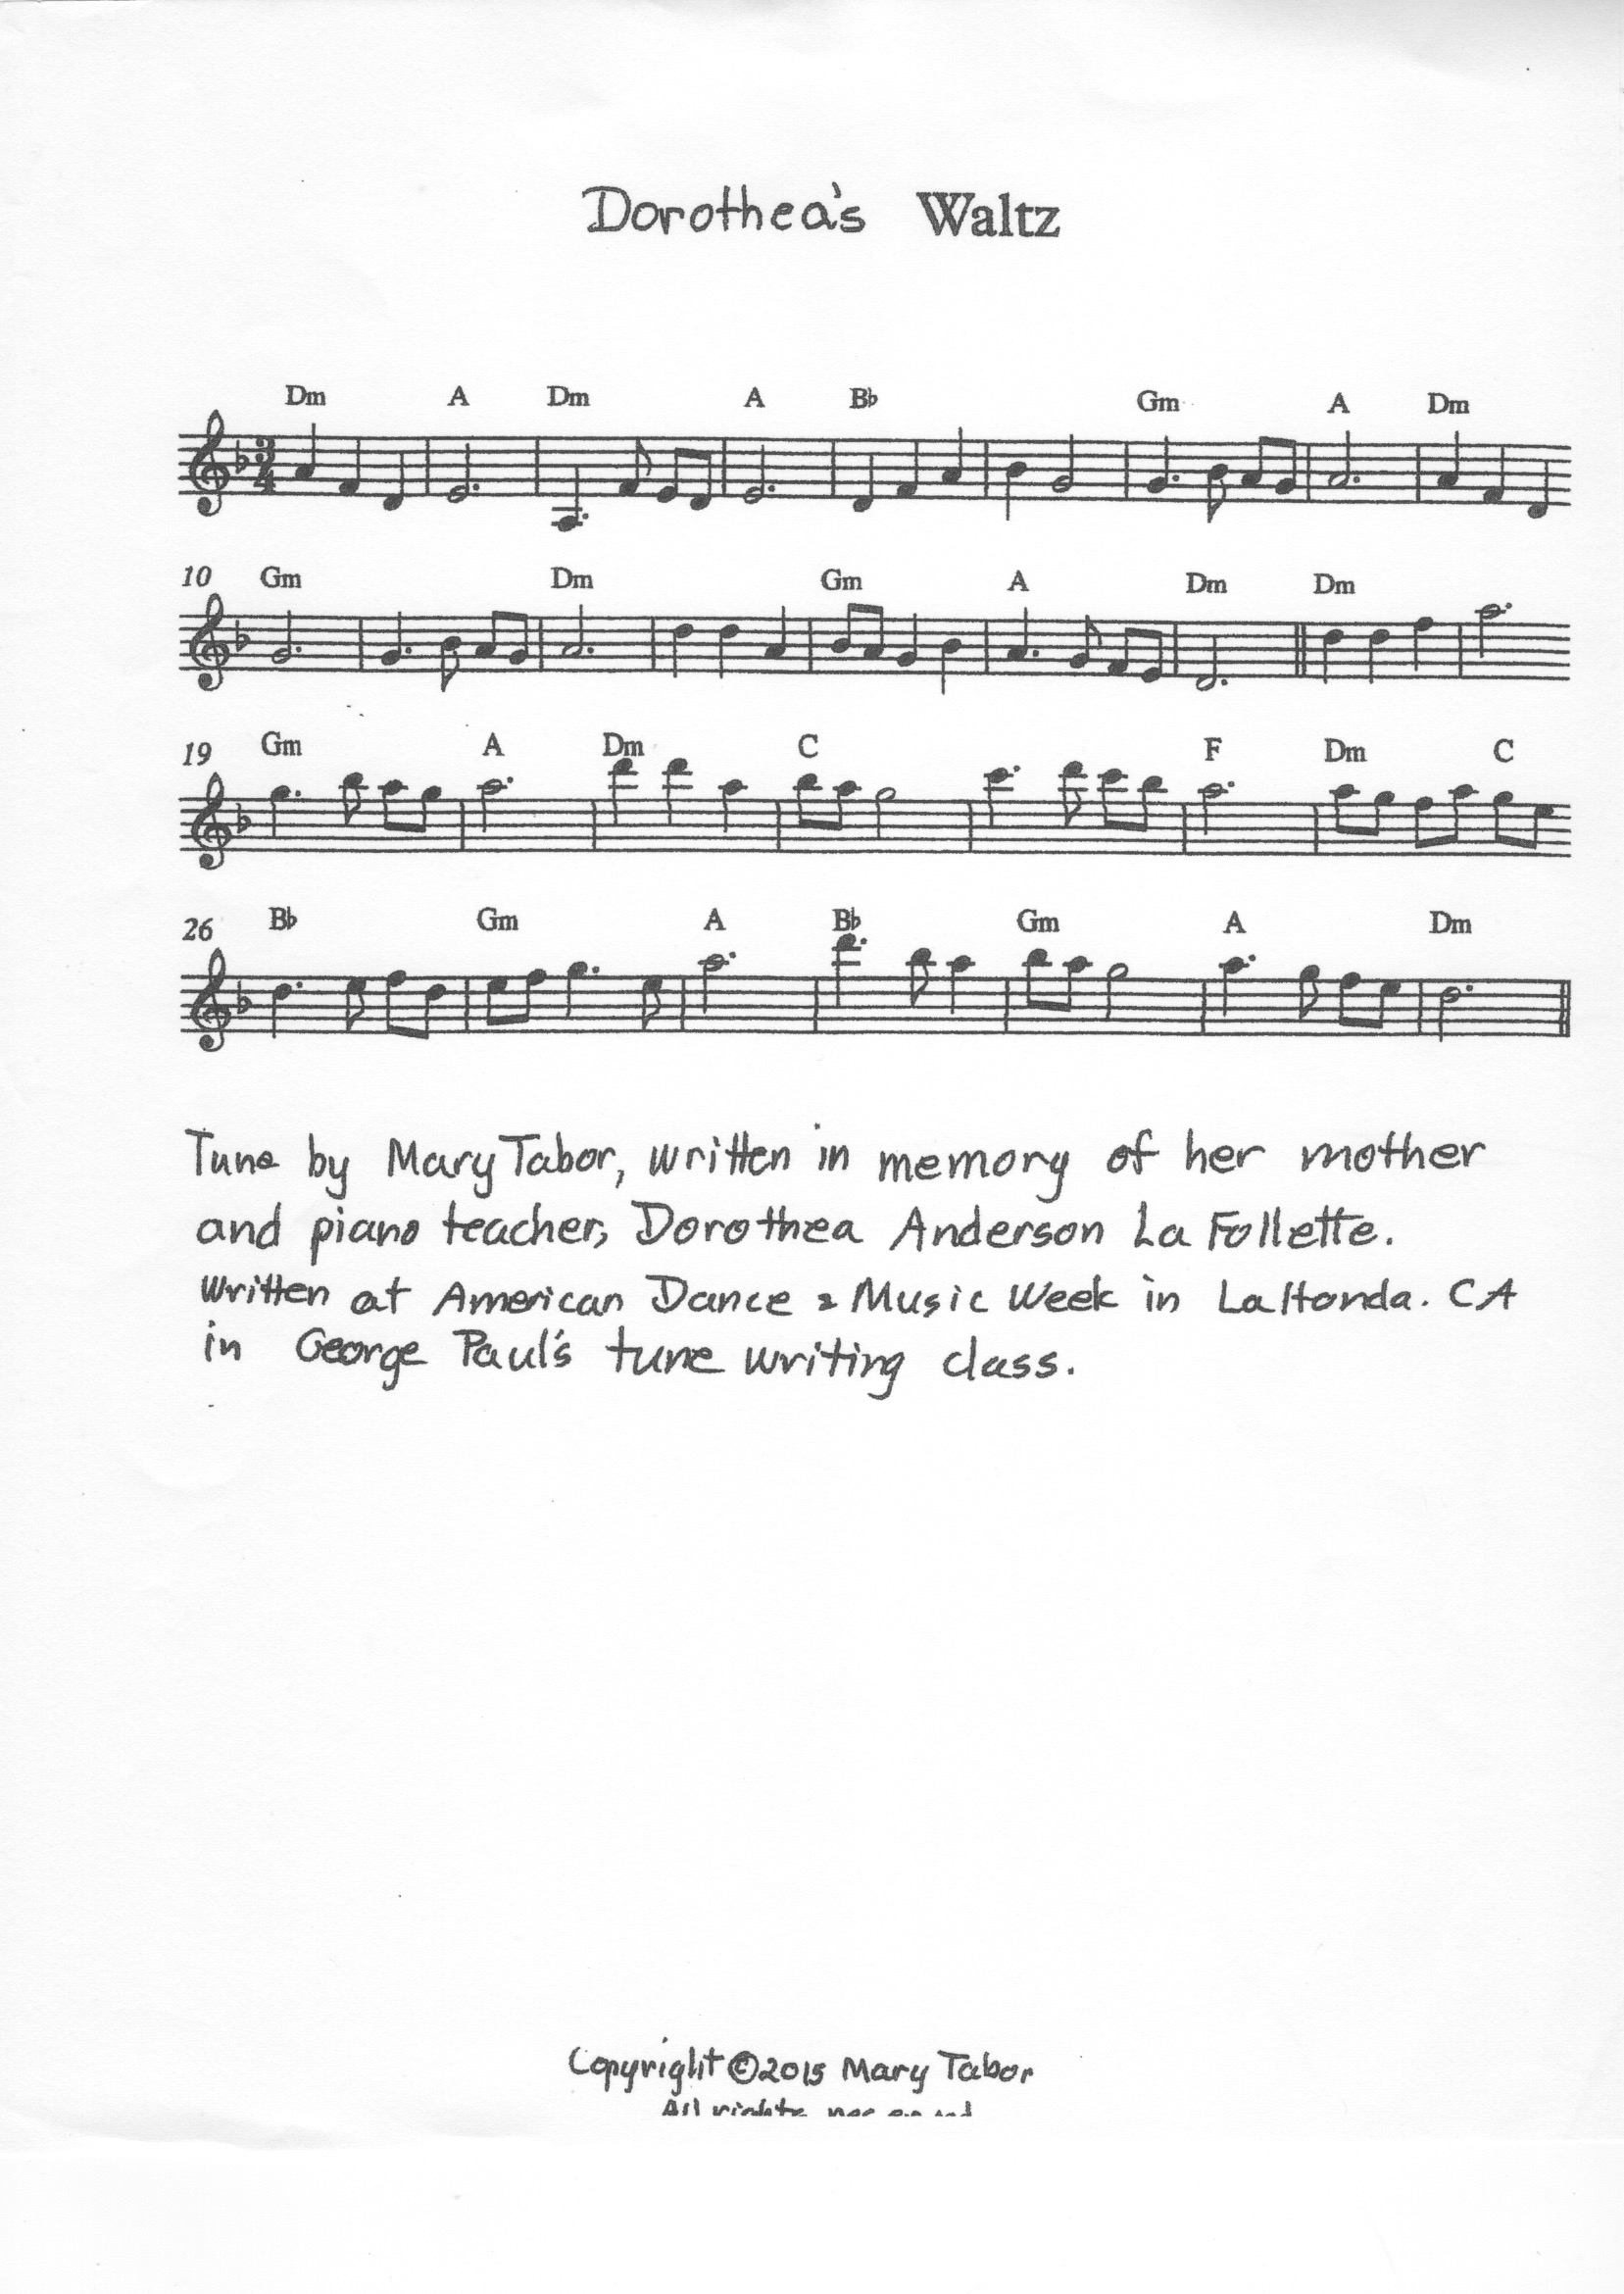 Dorothea's Waltz
Dm A Dm A Bb Gm A Dm
10 Gm Dm Gm A Dm Dm
19 Gm A Dm C F Dm C
26 Bb Gm A Bb Gm A Dm
Tune by Mary Tabor, written in memory of her mother
and piano teacher, Dorothea Anderson La Follette.
Written at American Dance & Music Week in La Honda. CA
in George Paul's tune writing class.
Copyright ©2015 Mary Tabor
All rights reserved